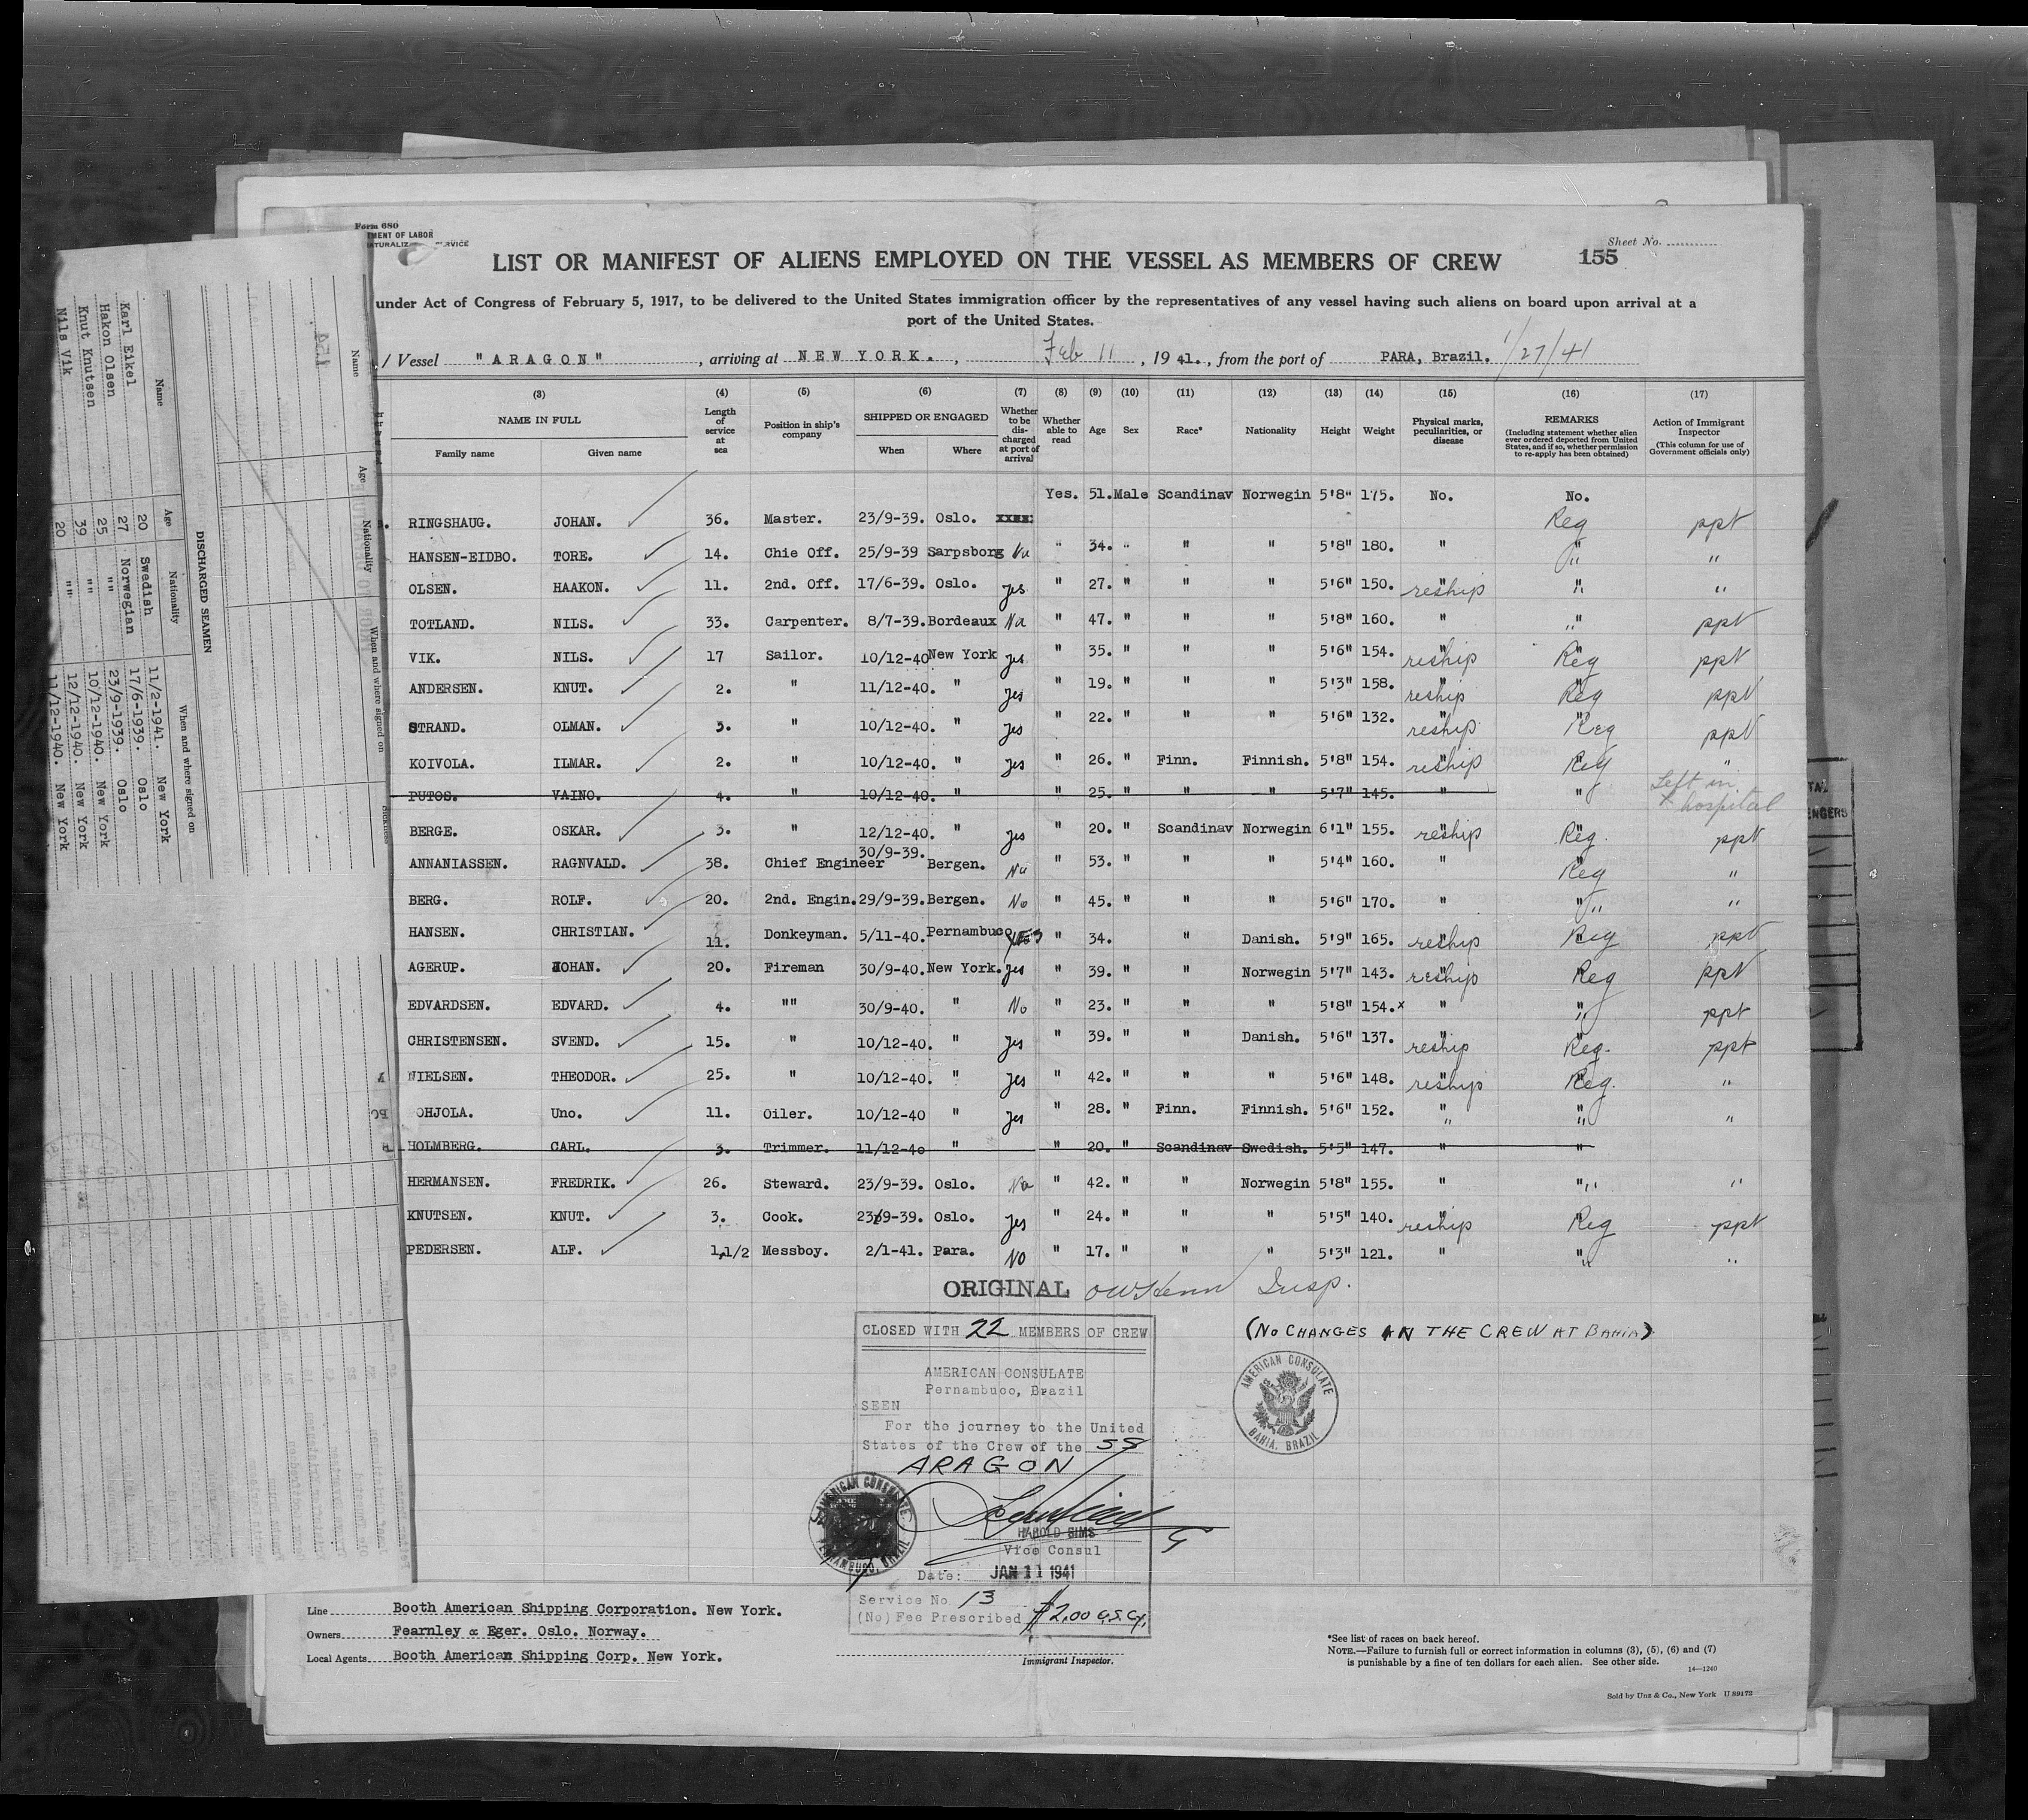 Form 680
TMENT OF LABOR
SERVICE
Sheet No.
LIST OR MANIFEST OF ALIENS EMPLOYED ON THE VESSEL AS MEMBERS OF CREW 155
under Act of Congress of February 5, 1917, to be delivered to the United States immigration officer by the representatives of any vessel having such aliens on board upon arrival at a
port of the United States.
Vessel "ARAGON", arriving at NEW YORK., Feb 11, 1941., from the port of PARA, Brazil. 1/27/41
(3) (4) (5) (6) (7) (8) (9) (10) (11) (12) (13) (14) (15) (16) (17)
NAME IN FULL
Family name Given name
Length of service at sea
Position in ship's company
SHIPPED OR ENGAGED
When Where
Whether to be discharged at port of arrival
Whether able to read
Age
Sex
Race*
Nationality
Height
Weight
Physical marks, peculiarities, or disease
REMARKS
(Including statement whether alien ever ordered deported from United States, and if so, whether permission to re-apply has been obtained)
Action of Immigrant Inspector
(This column for use of Government officials only)
Yes. 51. Male Scandinav Norwegin 5'8" 175. No. No.
RINGSHAUG. JOHAN. 36. Master. 23/9-39. Oslo. xxxx Reg ppt
HANSEN-EIDBO. TORE. 14. Chie Off. 25/9-39 Sarpsborg No " 34. " " " 5'8" 180. " " "
OLSEN. HAAKON. 11. 2nd. Off. 17/6-39. Oslo. yes " 27. " " " 5'6" 150. " reship " "
TOTLAND. NILS. 33. Carpenter. 8/7-39. Bordeaux No " 47. " " " 5'8" 160. " " ppt
VIK. NILS. 17 Sailor. 10/12-40 New York yes " 35. " " " 5'6" 154. " reship Reg ppt
ANDERSEN. KNUT. 2. " 11/12-40. " yes " 19. " " " 5'3" 158. " reship Reg ppt
STRAND. OLMAN. 3. " 10/12-40. " yes " 22. " " " 5'6" 132. " reship Reg ppt
KOIVOLA. ILMAR. 2. " 10/12-40. " yes " 26. " Finn. Finnish. 5'8" 154. " reship Reg "
PUTOS. VAINO. 4. " 10/12-40. " " 25. " " " 5'7" 145. " " Left in hospital
BERGE. OSKAR. 3. " 12/12-40. " yes " 20. " Scandinav Norwegin 6'1" 155. " reship Reg. ppt
ANNANIASSEN. RAGNVALD. 38. Chief Engineer 30/9-39. Bergen. No " 53. " " " 5'4" 160. " Reg "
BERG. ROLF. 20. 2nd. Engin. 29/9-39. Bergen. No " 45. " " " 5'6" 170. " " "
HANSEN. CHRISTIAN. 11. Donkeyman. 5/11-40. Pernambuco YES " 34. " Danish. 5'9" 165. " reship Reg ppt
AGERUP. JOHAN. 20. Fireman 30/9-40. New York. yes " 39. " " Norwegin 5'7" 143. " reship Reg ppt
EDVARDSEN. EDVARD. 4. "" 30/9-40. " No " 23. " " " 5'8" 154.x " " ppt
CHRISTENSEN. SVEND. 15. " 10/12-40. " yes " 39. " " Danish. 5'6" 137. " reship Reg. ppt
NIELSEN. THEODOR. 25. " 10/12-40. " yes " 42. " " " 5'6" 148. " reship Reg. "
OHJOLA. Uno. 11. Oiler. 10/12-40 " yes " 28. " Finn. Finnish. 5'6" 152. " " "
HOLMBERG. CARL. 3. Trimmer. 11/12-40 " " 20. " Scandinav Swedish. 5'5" 147. " "
HERMANSEN. FREDRIK. 26. Steward. 23/9-39. Oslo. No " 42. " " Norwegin 5'8" 155. " " "
KNUTSEN. KNUT. 3. Cook. 23/9-39. Oslo. yes " 24. " " " 5'5" 140. " reship Reg ppt
PEDERSEN. ALF. 1,1/2 Messboy. 2/1-41. Para. NO " 17. " " " 5'3" 121. " " "
ORIGINAL Insp.
CLOSED WITH 22 MEMBERS OF CREW
(NO CHANGES IN THE CREW AT BAHIA)
AMERICAN CONSULATE
Pernambuco, Brazil
SEEN
For the journey to the United
States of the Crew of the SS
ARAGON
HAROLD SIMS
Vice Consul
Date: JAN 11 1941
Service No. 13
(No) Fee Prescribed $2.00 G.S.Cy.
AMERICAN CONSULATE
BAHIA, BRAZIL
AMERICAN CONSULATE
PERNAMBUCO, BRAZIL
Line Booth American Shipping Corporation. New York.
Owners Fearnley & Eger. Oslo. Norway.
Local Agents Booth American Shipping Corp. New York.
Immigrant Inspector.
*See list of races on back hereof.
NOTE.—Failure to furnish full or correct information in columns (3), (5), (6) and (7)
is punishable by a fine of ten dollars for each alien. See other side.
14—1240
Sold by Unz & Co., New York U 89172
DISCHARGED SEAMEN
Name Age Nationality When and where signed on
Karl Eikel 20 Swedish 11/2-1941. New York
Hakon Olsen 27 Norwegian 17/6-1939. Oslo
Knut Knutsen 25 "" 23/9-1939. Oslo
Nils Vik 39 "" 10/12-1940. New York
20 "" 12/12-1940. New York
11/12-1940. New York
Name Age Nationality When and where signed on